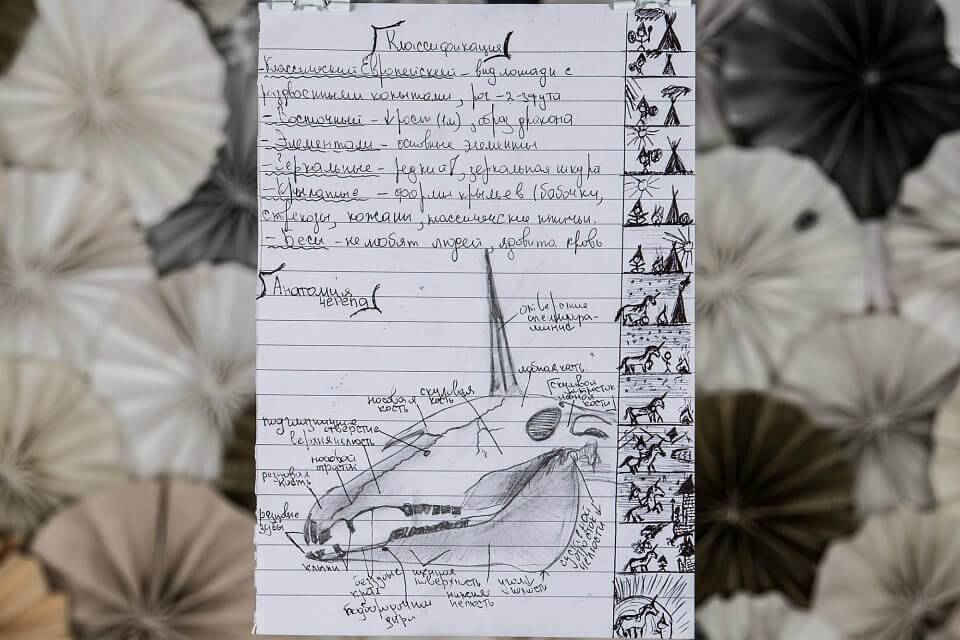 Классификация
- Классический Европейский - вид лошади с
раздвоенными копытами, рог - 2-3 фута
- Восточный - ↓ рост (1м), образ дракона
- Элементали - основные элементы
- Зеркальные - редкий, зеркальная шкура
- Крылатые - формы крыльев (бабочки,
стрекозы, кожани, классические птичьи.
- Бесы - не любят людей, ядовита кровь
Анатомия
черепа
отверстие
лобная кость
скуловая
кость
носовая
кость
скуловой
отросток
кости
подглазничное
отверстие
верхняя челюсть
носовой
резцовая
кость
резцовые
зубы
клыки
беззубые
края
нижняя
челюсть
поверхность
угол
челюсти
суставной
отросток
челюсти